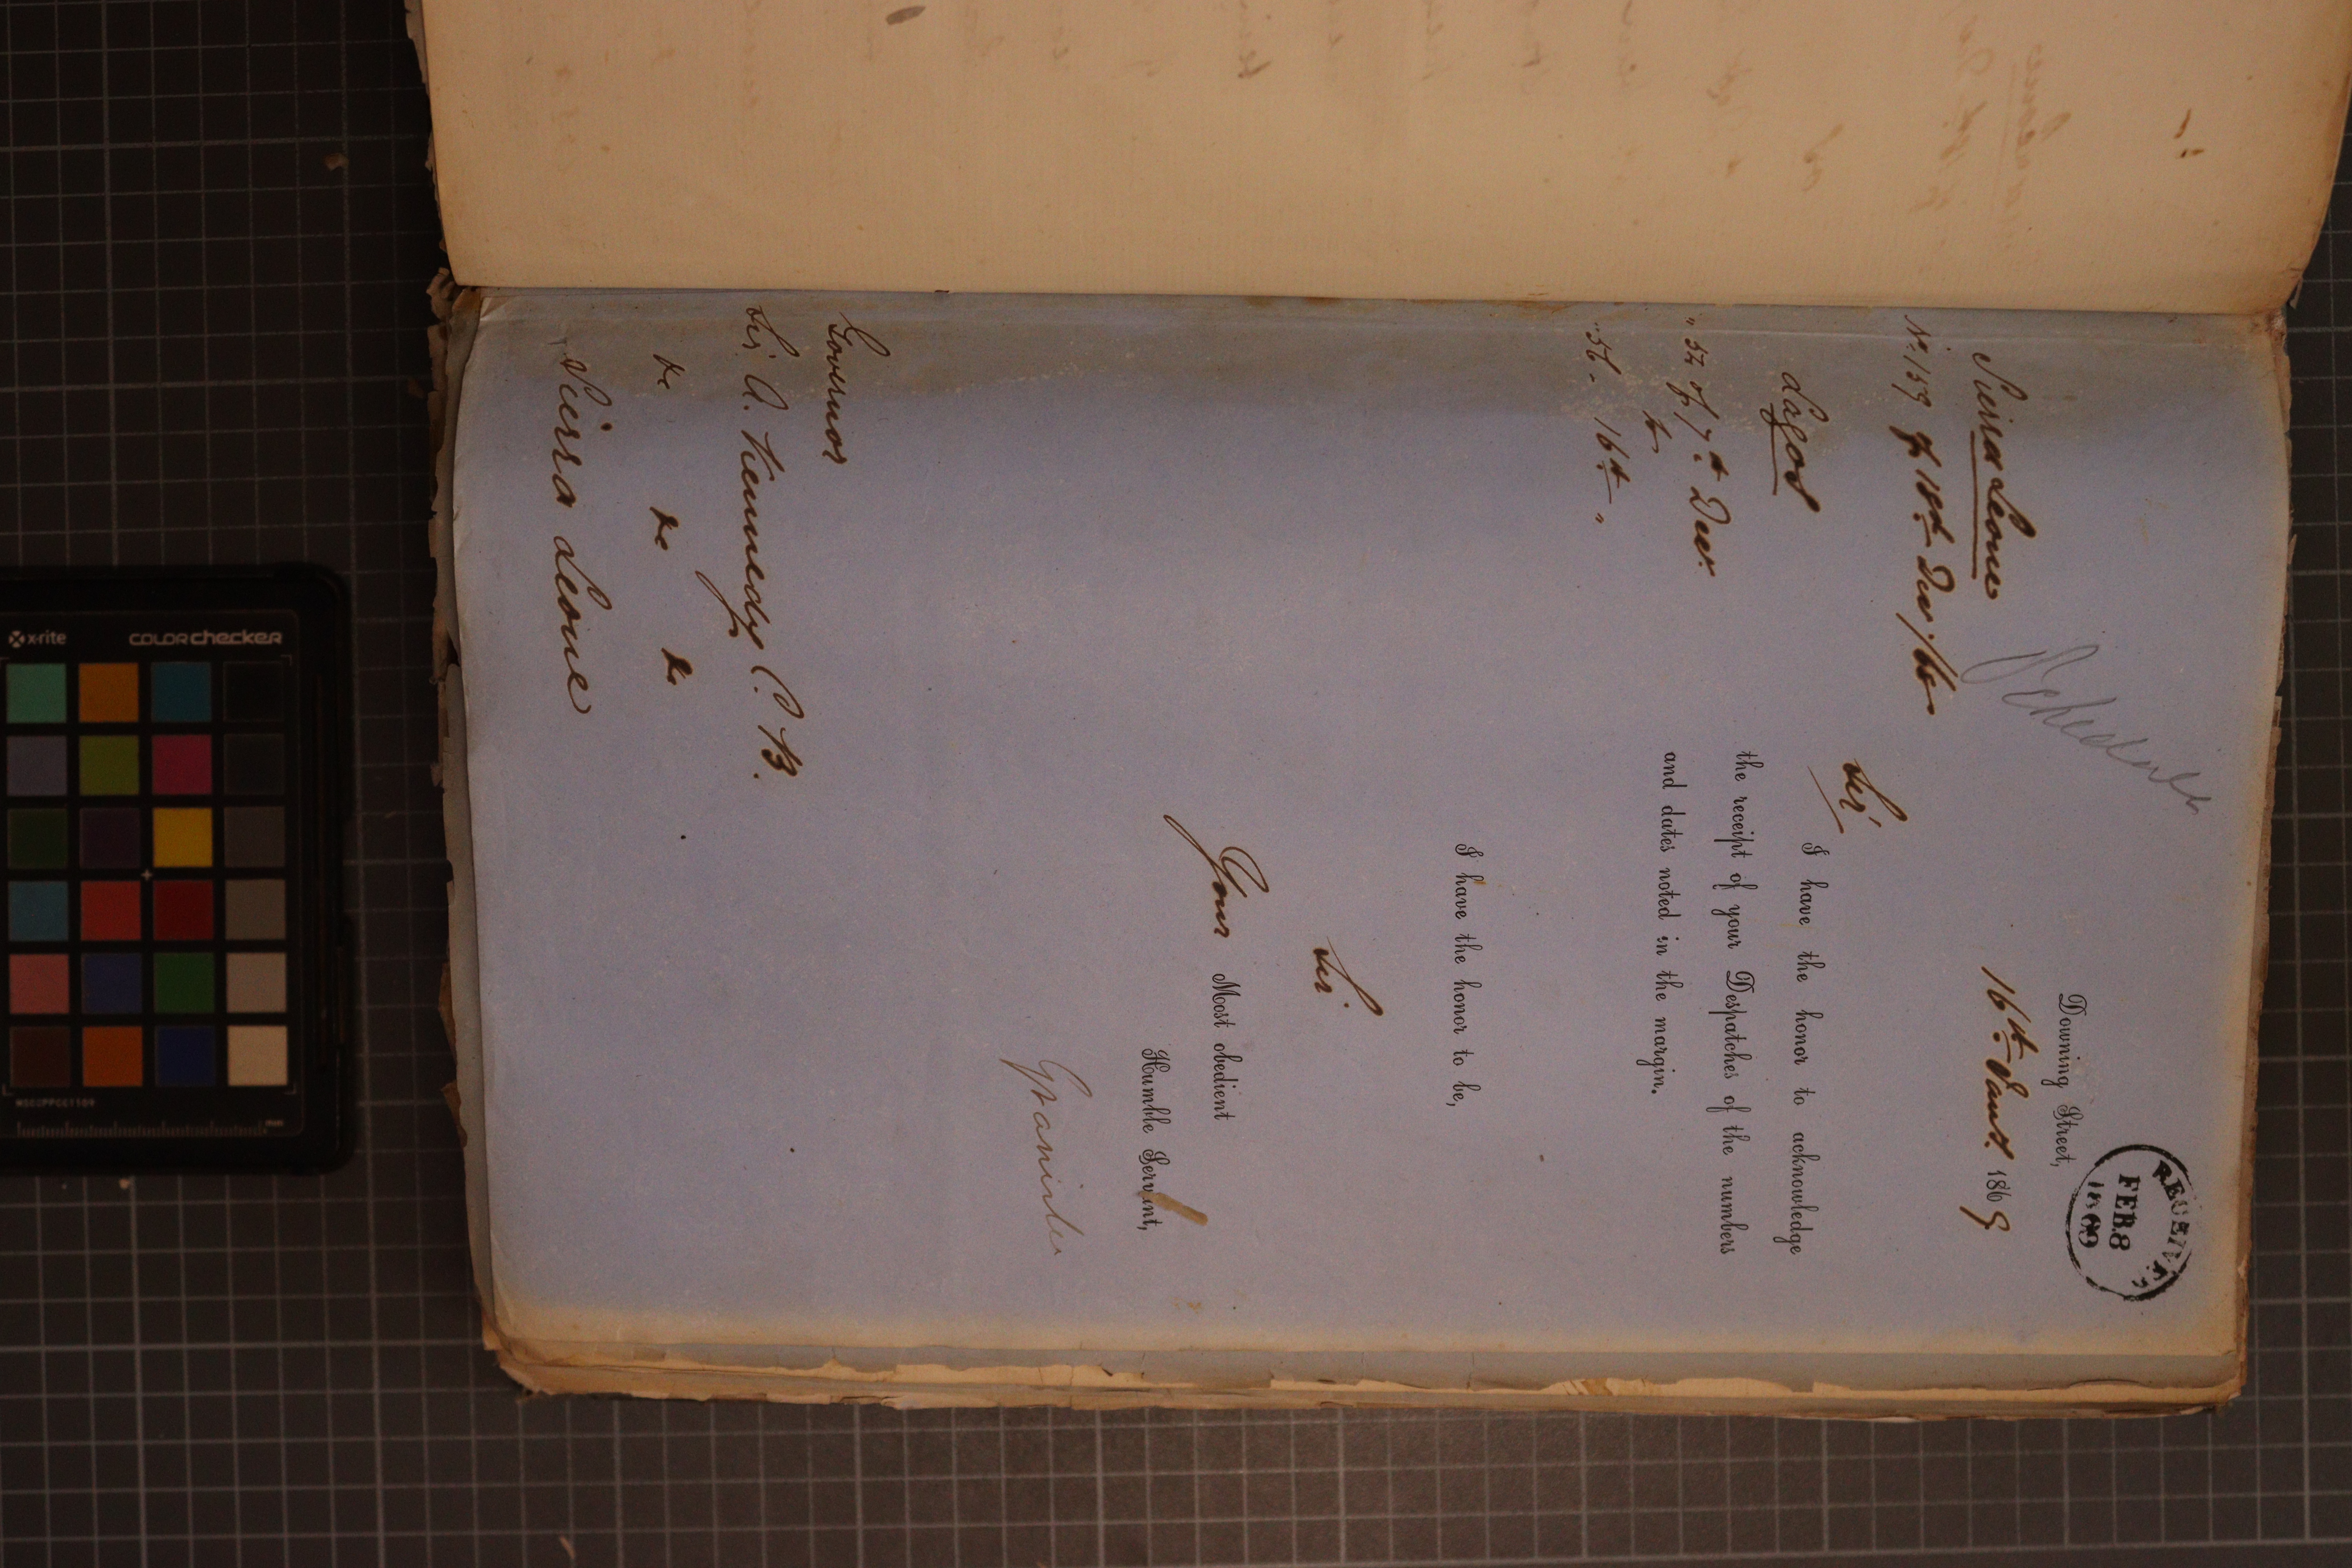 Schedule
RECEIVED
FEB 8
1869
Downing Street,
16th Jany. 1869
Sierra Leone
No. 159 of 18th Decr/68
Sir,
Lagos
I have the honor to acknowledge
the receipt of your Despatches of the numbers
and dates noted in the margin.
" 54 of 7th Decr.
to
" 56 - 16th "
I have the honor to be,
Sir
Your Most obedient
Humble Servant,
Granville
Governor
Sir A. Kennedy C.B.
&c &c &c
Sierra Leone
x-rite
COLORchecker
mm